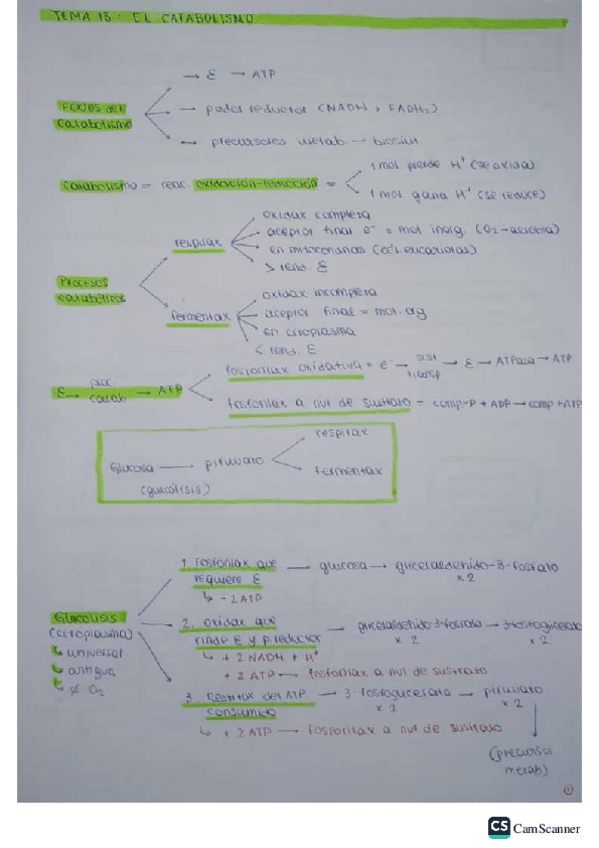 TEMA 13: EL CATABOLISMO
→ E → ATP
→ poder reductor (NADH y FADH₂)
catabolismo
→ precursores metab → biosínt
catabolismo = reac. oxidación-reducción =
1 mol. pierde H⁺ (se oxida)
1 mol. gana H⁺ (se reduce)
Procesos
catabólicos
respirax
oxidax completa
aceptor final e⁻ = mol inorg. (O₂ → aerobia)
en mitocondrias (cél. eucariotas)
> rend. E
fermentax
oxidax incompleta
aceptor final = mol. org
en citoplasma
< rend. E
E → proc. catab. → ATP
fosforilax oxidativa = e⁻ → sist transp → E → ATPasa → ATP
fosforilax a nvl de sustrato = comp-P + ADP → comp + ATP
Glucosa → piruvato
(glucólisis)
respirax
fermentax
Glucólisis
(citoplasma)
↳ universal
↳ antigua
↳ ∅ O₂
1. Fosforilax que → glucosa → gliceraldehido-3-fosfato
requiere E
x 2
↳ - 2 ATP
2. Oxidax que → gliceraldehido-3-fosfato → 3-fosfoglicerato
rinde E y p. reductor
x 2
x 2
↳ + 2 NADH + H⁺
+ 2 ATP ← fosforilax a nvl de sustrato
3. Restitux del ATP → 3-fosfoglicerato → piruvato
consumido
x 2
x 2
↳ + 2 ATP → fosforilax a nvl de sustrato
(precursor
metab)
1
CS CamScanner